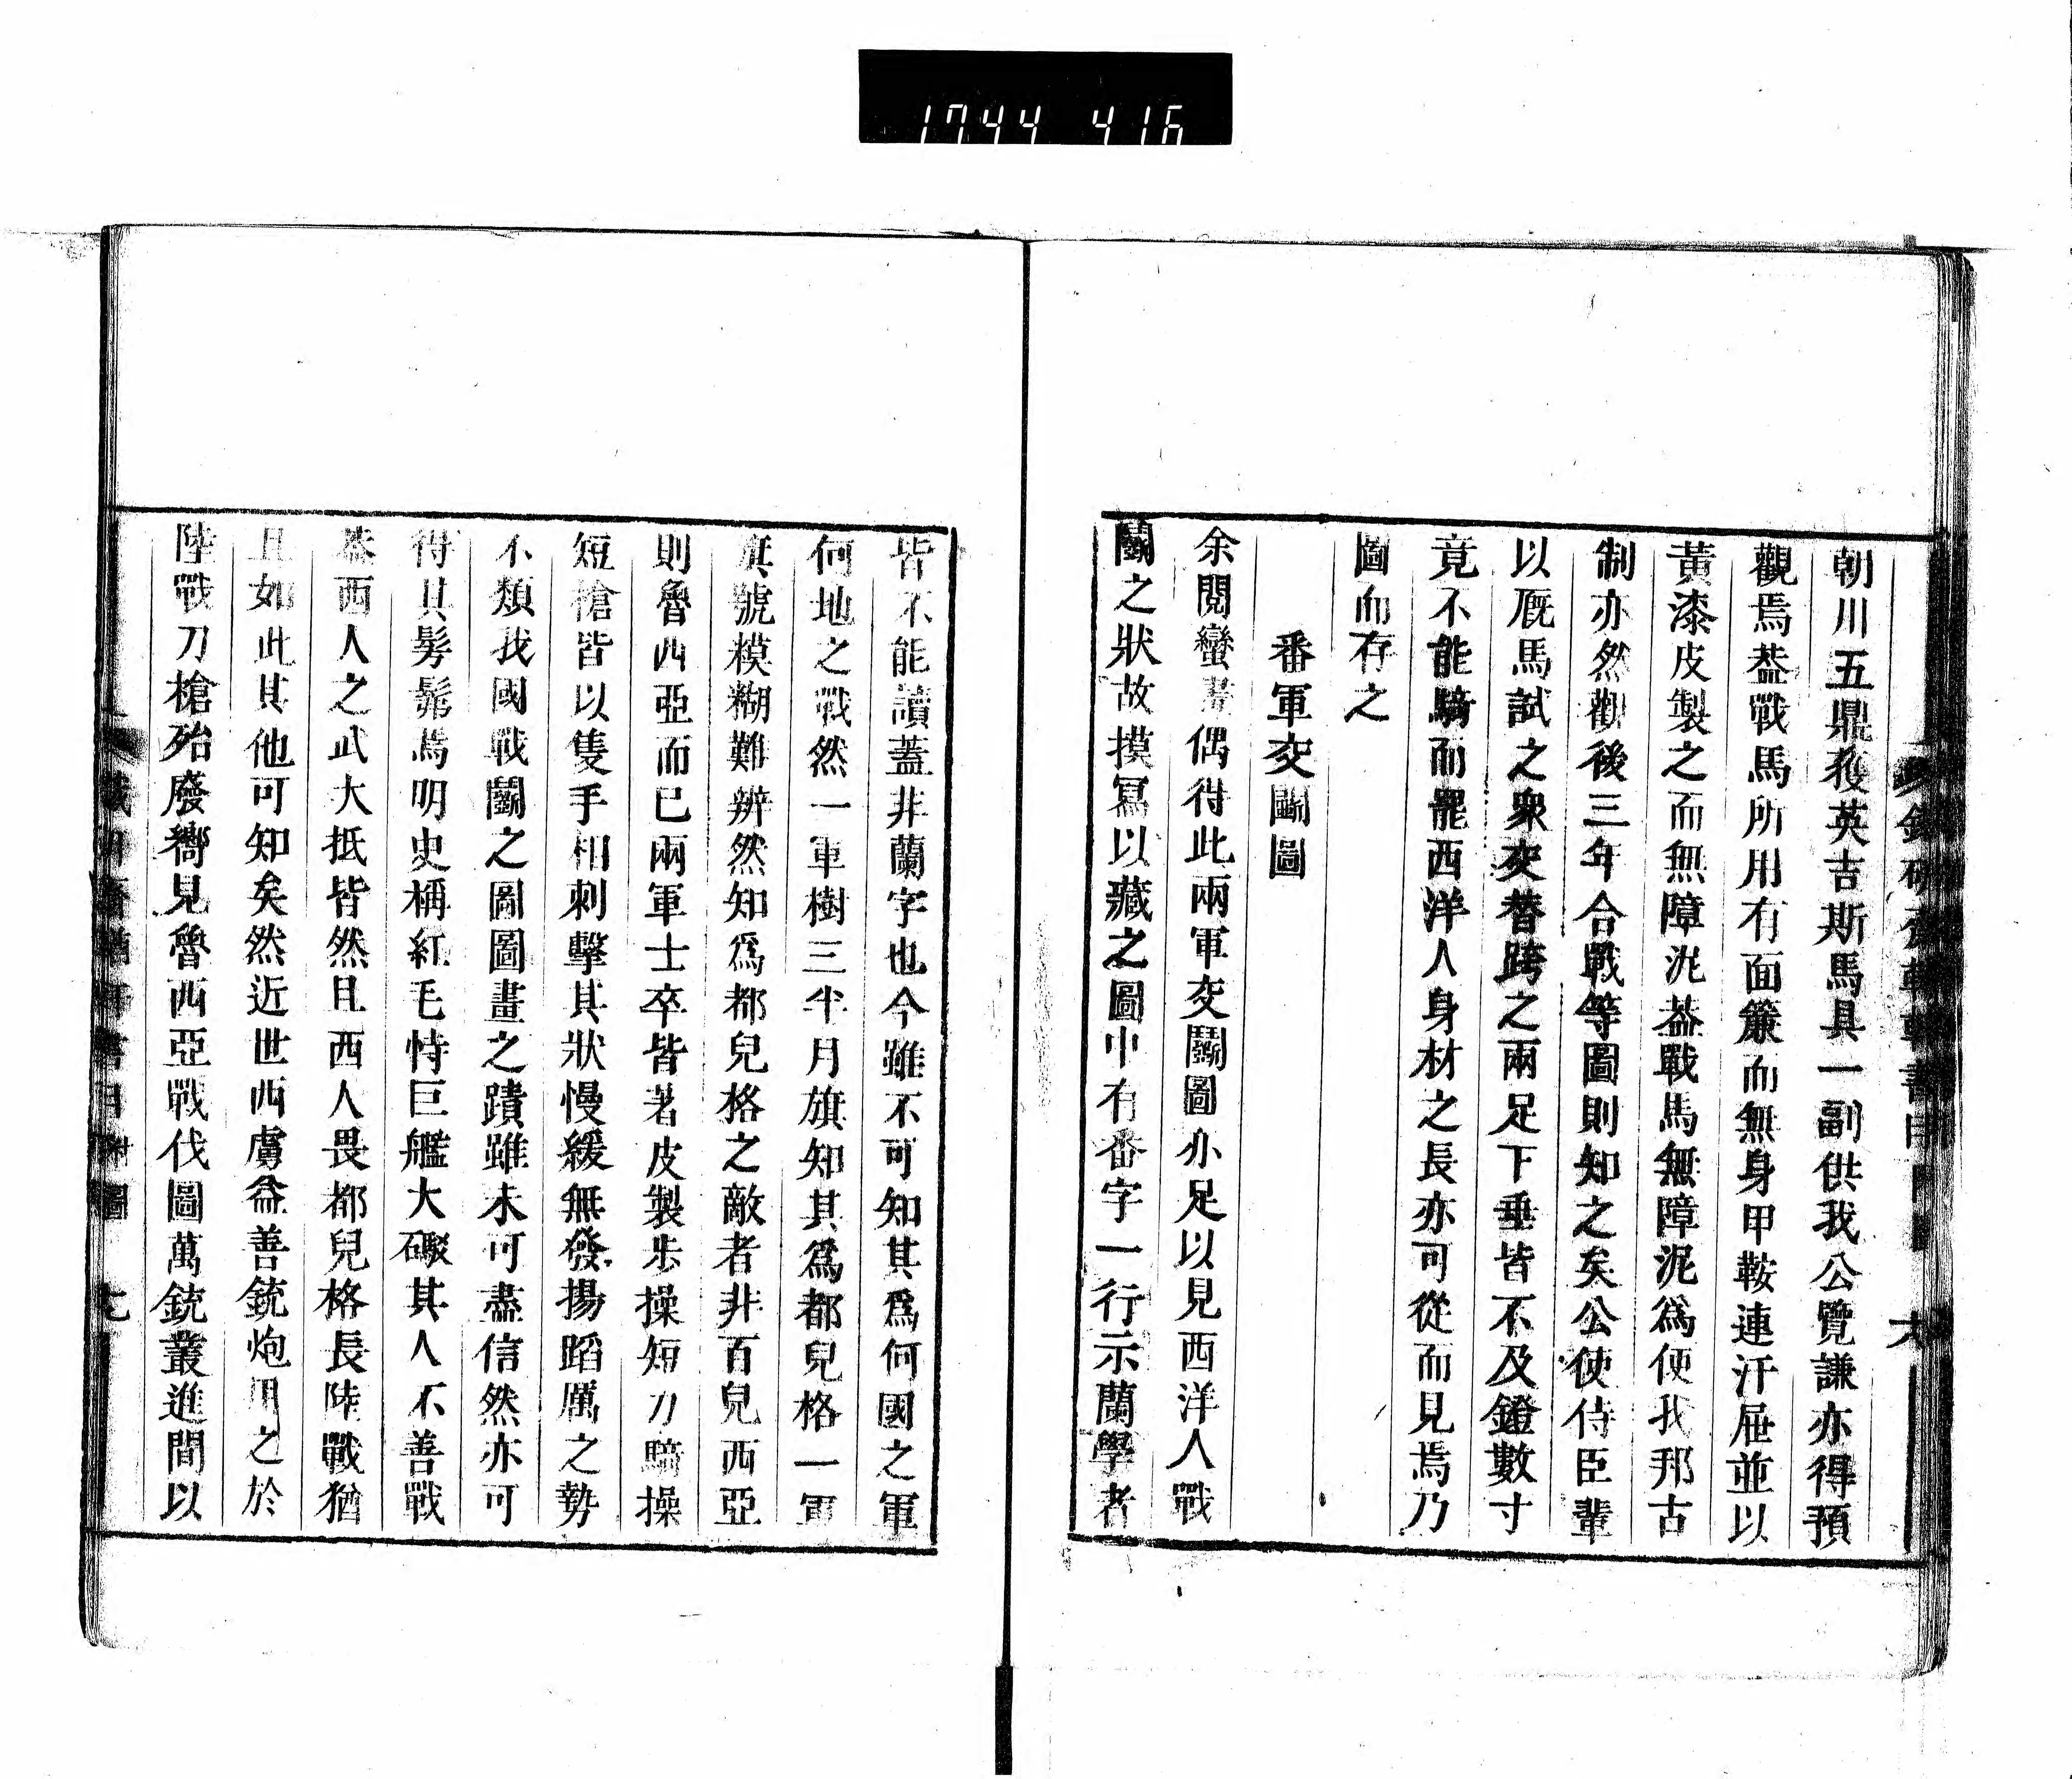 1744 416
朝川五鼎獲英吉斯馬具一副供我公覽謙亦得預
觀焉葢戰馬所用有面簾而無身甲鞍連汗屉並以
黃漆皮製之而無障泥葢戰馬無障泥爲便我邦古
制亦然觀後三年合戰等圖則知之矣公使侍臣輩
以厩馬試之衆交替跨之兩足下垂皆不及鐙數寸
竟不能騎而罷西洋人身材之長亦可從而見焉乃
圖而存之
番軍交鬭圖
余閱蠻畫偶得此兩軍交鬭圖亦足以見西洋人戰
鬭之狀故摸冩以藏之圖中有番字一行示蘭學者
皆不能讀蓋非蘭字也今雖不可知其爲何國之軍
何地之戰然一軍樹三半月旗知其爲都兒格一軍
旗號模糊難辨然知爲都兒格之敵者非百兒西亞
則魯西亞而已兩軍士卒皆著皮製步操短刀騎操
短槍皆以隻手相刺擊其狀慢緩無發揚蹈厲之勢
不類我國戰鬭之圖圖畫之蹟雖未可盡信然亦可
得其髣髴焉明史稱紅毛恃巨艦大礮其人不善戰
葢西人之武大抵皆然且西人畏都兒格長陸戰猶
且如此其他可知矣然近世西虜益善銃炮用之於
陸戰刀槍殆廢嚮見魯西亞戰伐圖萬銃叢進間以